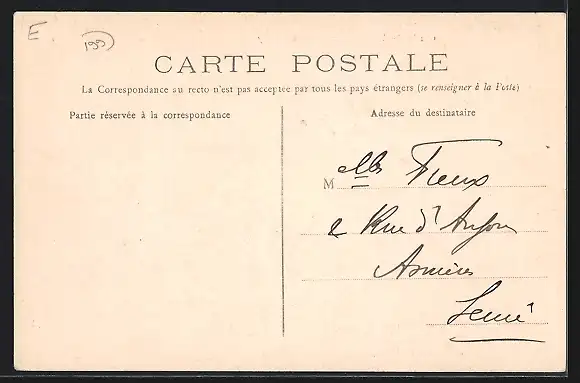 E
199
CARTE POSTALE
La Correspondance au recto n'est pas acceptée par tous les pays étrangers (se renseigner à la Poste)
Partie réservée à la correspondance
Adresse du destinataire
M elle Fieux
2 Rue d'Anjou
Asnières
Seine